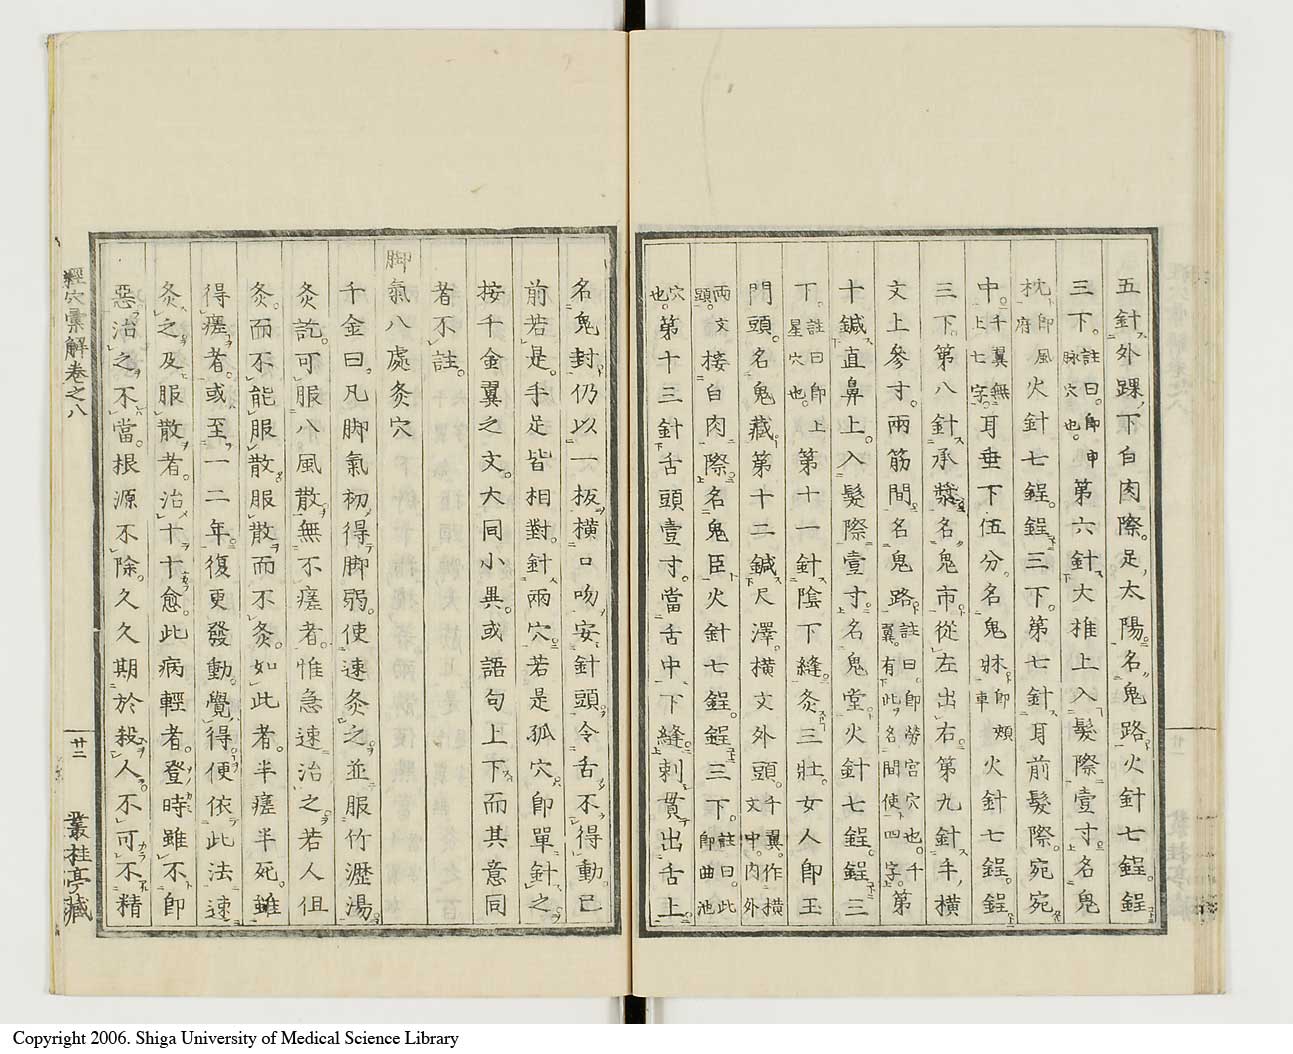 五針外踝下白肉際足太陽名鬼路火針七鍟鍟
三下註曰即申脉穴也第六針大椎上入髮際壹寸名鬼
枕即風府火針七鍟鍟三下第七針耳前髮際宛宛
中千翼無上七字耳垂下伍分名鬼牀即頰車火針七鍟鍟
三下第八針承漿名鬼市從左出右第九針手橫
文上參寸兩筋間名鬼路註曰即勞宮穴也千翼有此名間使四字第
十鍼直鼻上入髮際壹寸名鬼堂火針七鍟鍟三
下註曰即上星穴也第十一針陰下縫灸三壯女人即玉
門頭名鬼藏第十二鍼尺澤橫文外頭千翼作橫文中肉外
兩文頭接白肉際名鬼臣火針七鍟鍟三下註曰此即曲池
穴也第十三針舌頭壹寸當舌中下縫刺貫出舌上
名鬼封仍以一板橫口吻安針頭令舌不得動已
前若是手足皆相對針兩穴若是孤穴即單針之
按千金翼之文大同小異或語句上下而其意同
者不註
脚氣八處灸穴
千金曰凡脚氣初得脚弱使速灸之並服竹瀝湯
灸訖可服八風散無不瘥者惟急速治之若人但
灸而不能服散服散而不灸如此者半瘥半死雖
得瘥者或至一二年復更發動覺得便依此法速
灸之及服散者治十十愈此病輕者登時雖不即
惡治之不當根源不除久久期於殺人不可不精
經穴彙解卷之八
廿二
叢桂亭藏
Copyright 2006. Shiga University of Medical Science Library